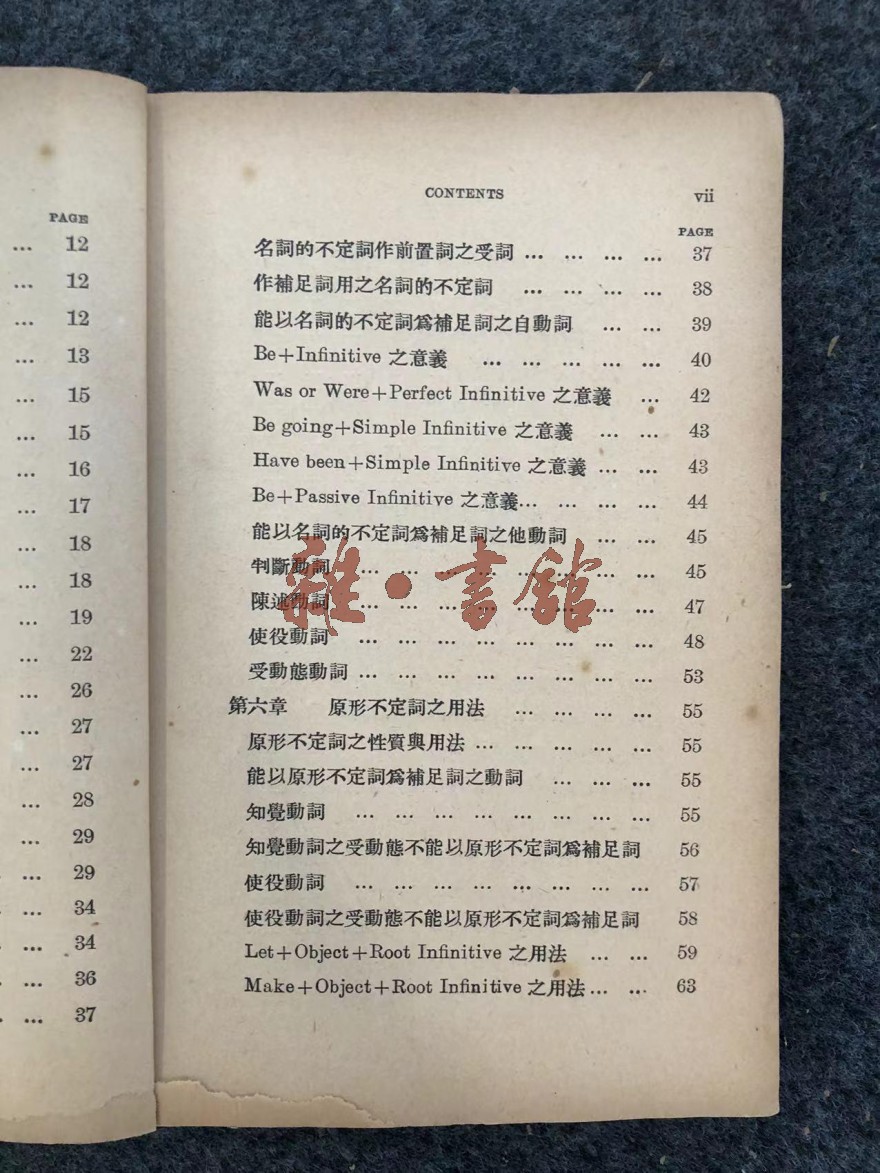 PAGE
... 12
... 12
... 12
... 13
... 15
... 15
... 16
... 17
... 18
... 18
... 19
... 22
... 26
... 27
... 27
... 28
... 29
... 29
... 34
... 34
... 36
... 37
CONTENTS vii
PAGE
名詞的不定詞作前置詞之受詞 ... ... ... ... 37
作補足詞用之名詞的不定詞 ... ... ... ... 38
能以名詞的不定詞爲補足詞之自動詞 ... ... 39
Be+Infinitive 之意義 ... ... ... ... ... 40
Was or Were+Perfect Infinitive 之意義 ... 42
Be going+Simple Infinitive 之意義 ... ... 43
Have been+Simple Infinitive 之意義 ... ... 43
Be+Passive Infinitive 之意義... ... ... ... 44
能以名詞的不定詞爲補足詞之他動詞 ... ... 45
判斷動詞 ... ... ... ... ... ... ... ... 45
陳述動詞 ... ... ... ... ... ... ... ... 47
雜·書館
使役動詞 ... ... ... ... ... ... ... ... 48
受動態動詞 ... ... ... ... ... ... ... ... 53
第六章 原形不定詞之用法 ... ... ... ... 55
原形不定詞之性質與用法 ... ... ... ... ... 55
能以原形不定詞爲補足詞之動詞 ... ... ... 55
知覺動詞 ... ... ... ... ... ... ... ... 55
知覺動詞之受動態不能以原形不定詞爲補足詞 56
使役動詞 ... ... ... ... ... ... ... ... 57
使役動詞之受動態不能以原形不定詞爲補足詞 58
Let+Object+Root Infinitive 之用法 ... ... 59
Make+Object+Root Infinitive 之用法 ... ... 63